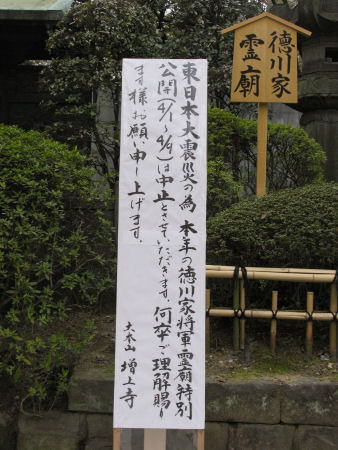 徳川家
霊廟
東日本大震災の為 本年の徳川家将軍霊廟特別
公開(4/1~4/9)は中止とさせていただきます。何卒ご理解賜り
ます様、お願い申し上げます。
大本山 増上寺